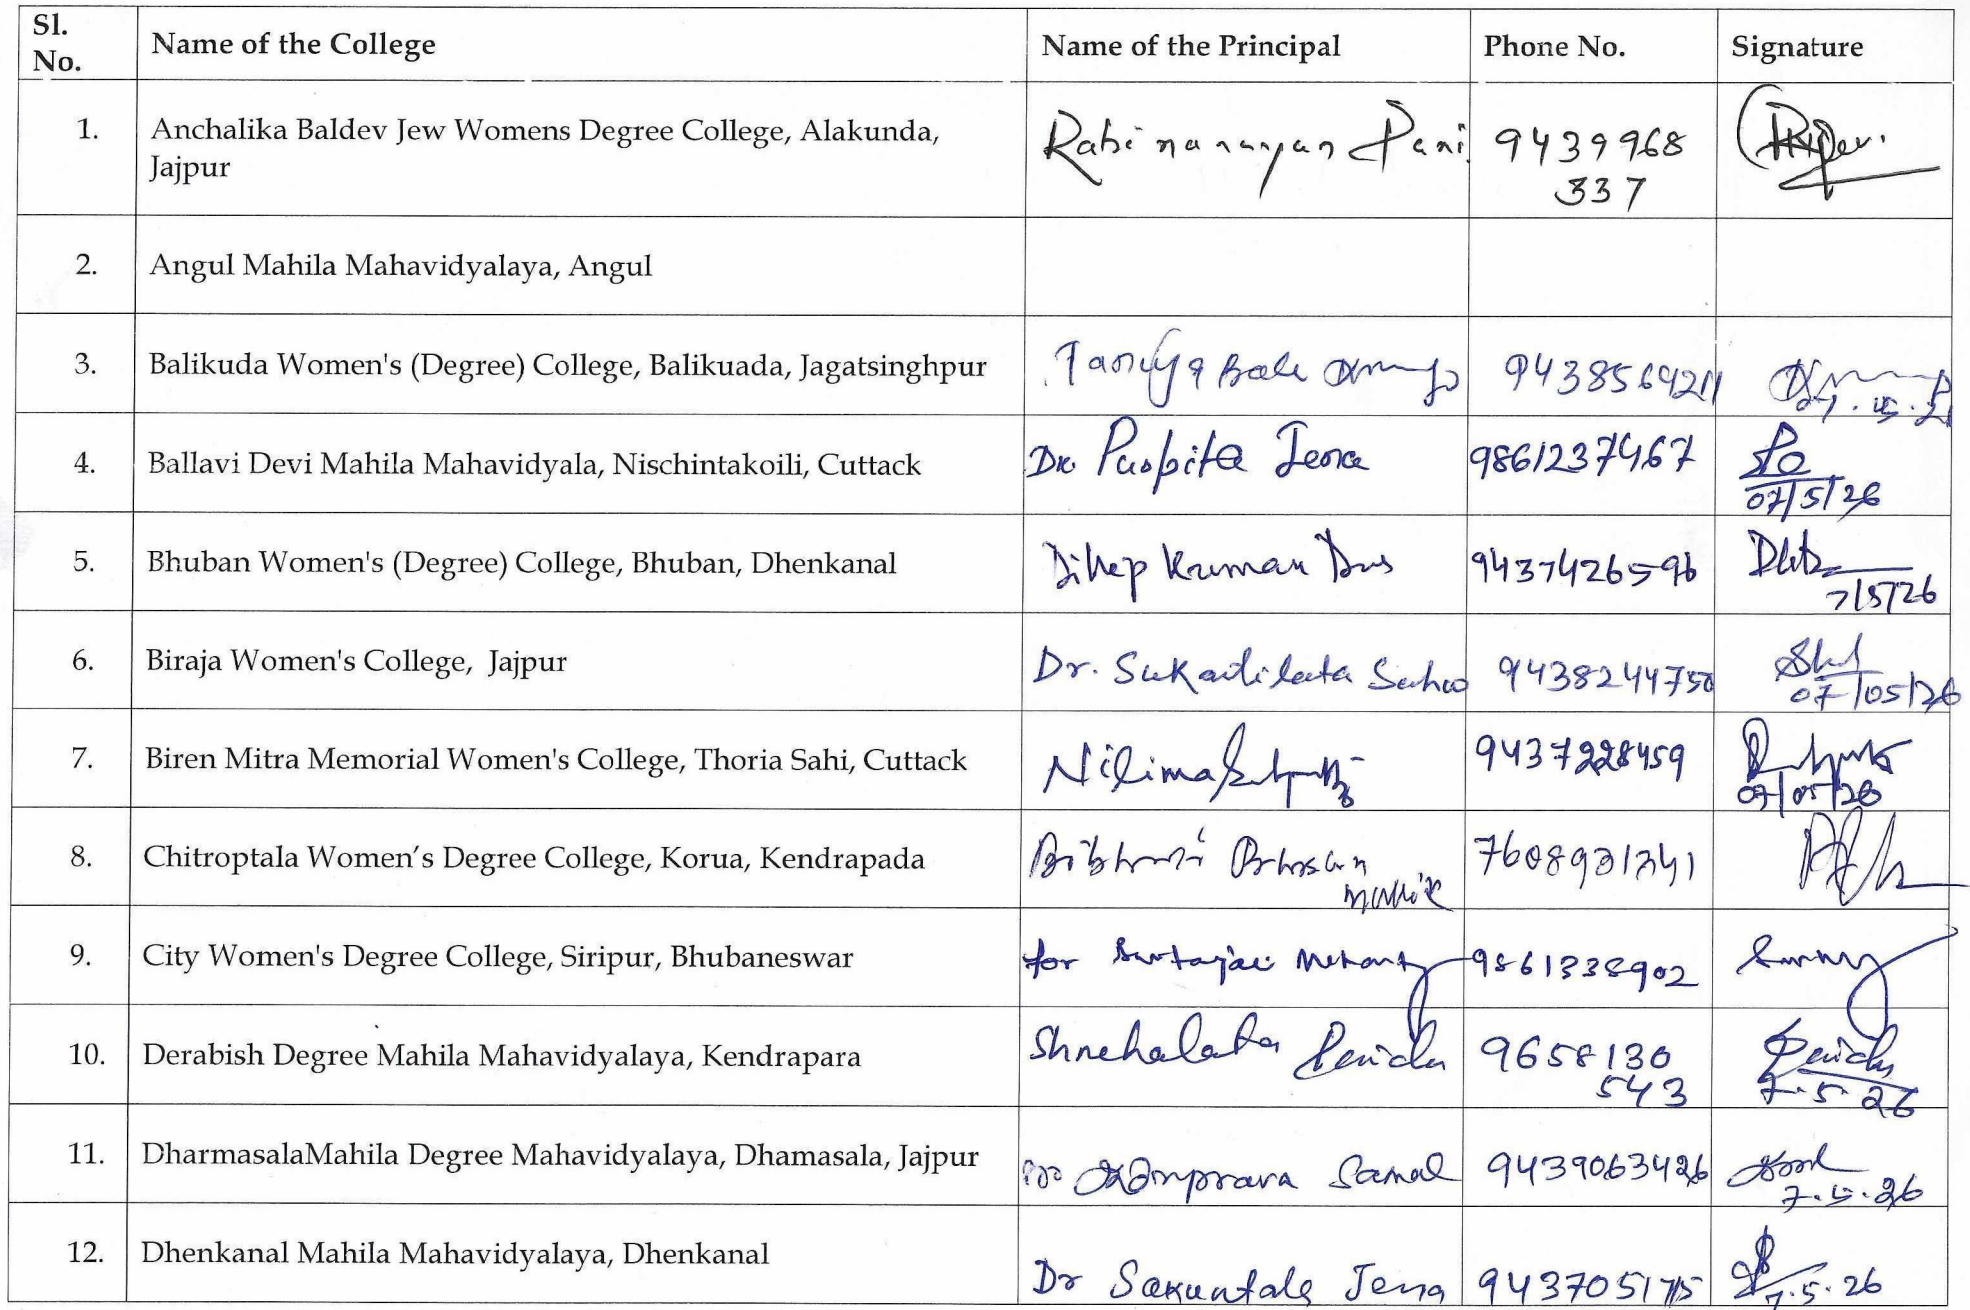 Sl. No. Name of the College Name of the Principal Phone No. Signature
1. Anchalika Baldev Jew Womens Degree College, Alakunda, Rabinarayan Pani 9439968
Jajpur 337
2. Angul Mahila Mahavidyalaya, Angul
3. Balikuda Women's (Degree) College, Balikuada, Jagatsinghpur
4. Ballavi Devi Mahila Mahavidyala, Nischintakoili, Cuttack Dr. Puspita Jena 9861237467
07/5/26
5. Bhuban Women's (Degree) College, Bhuban, Dhenkanal Dilip Kumar Das 9437426596
7/5/26
6. Biraja Women's College, Jajpur Dr. Sukantilata Sahoo 9438244750
07/05/26
7. Biren Mitra Memorial Women's College, Thoria Sahi, Cuttack Nilima 9437228459
07/05/26
8. Chitroptala Women’s Degree College, Korua, Kendrapada Bhusan
Mallik
9. City Women's Degree College, Siripur, Bhubaneswar for
10. Derabish Degree Mahila Mahavidyalaya, Kendrapara Snehalata Parida 9658130
543
7.5.26
11. DharmasalaMahila Degree Mahavidyalaya, Dhamasala, Jajpur Samal 9439063426
7.5.26
12. Dhenkanal Mahila Mahavidyalaya, Dhenkanal Dr Sakuntala Jena
7.5.26